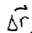 Δr⃗